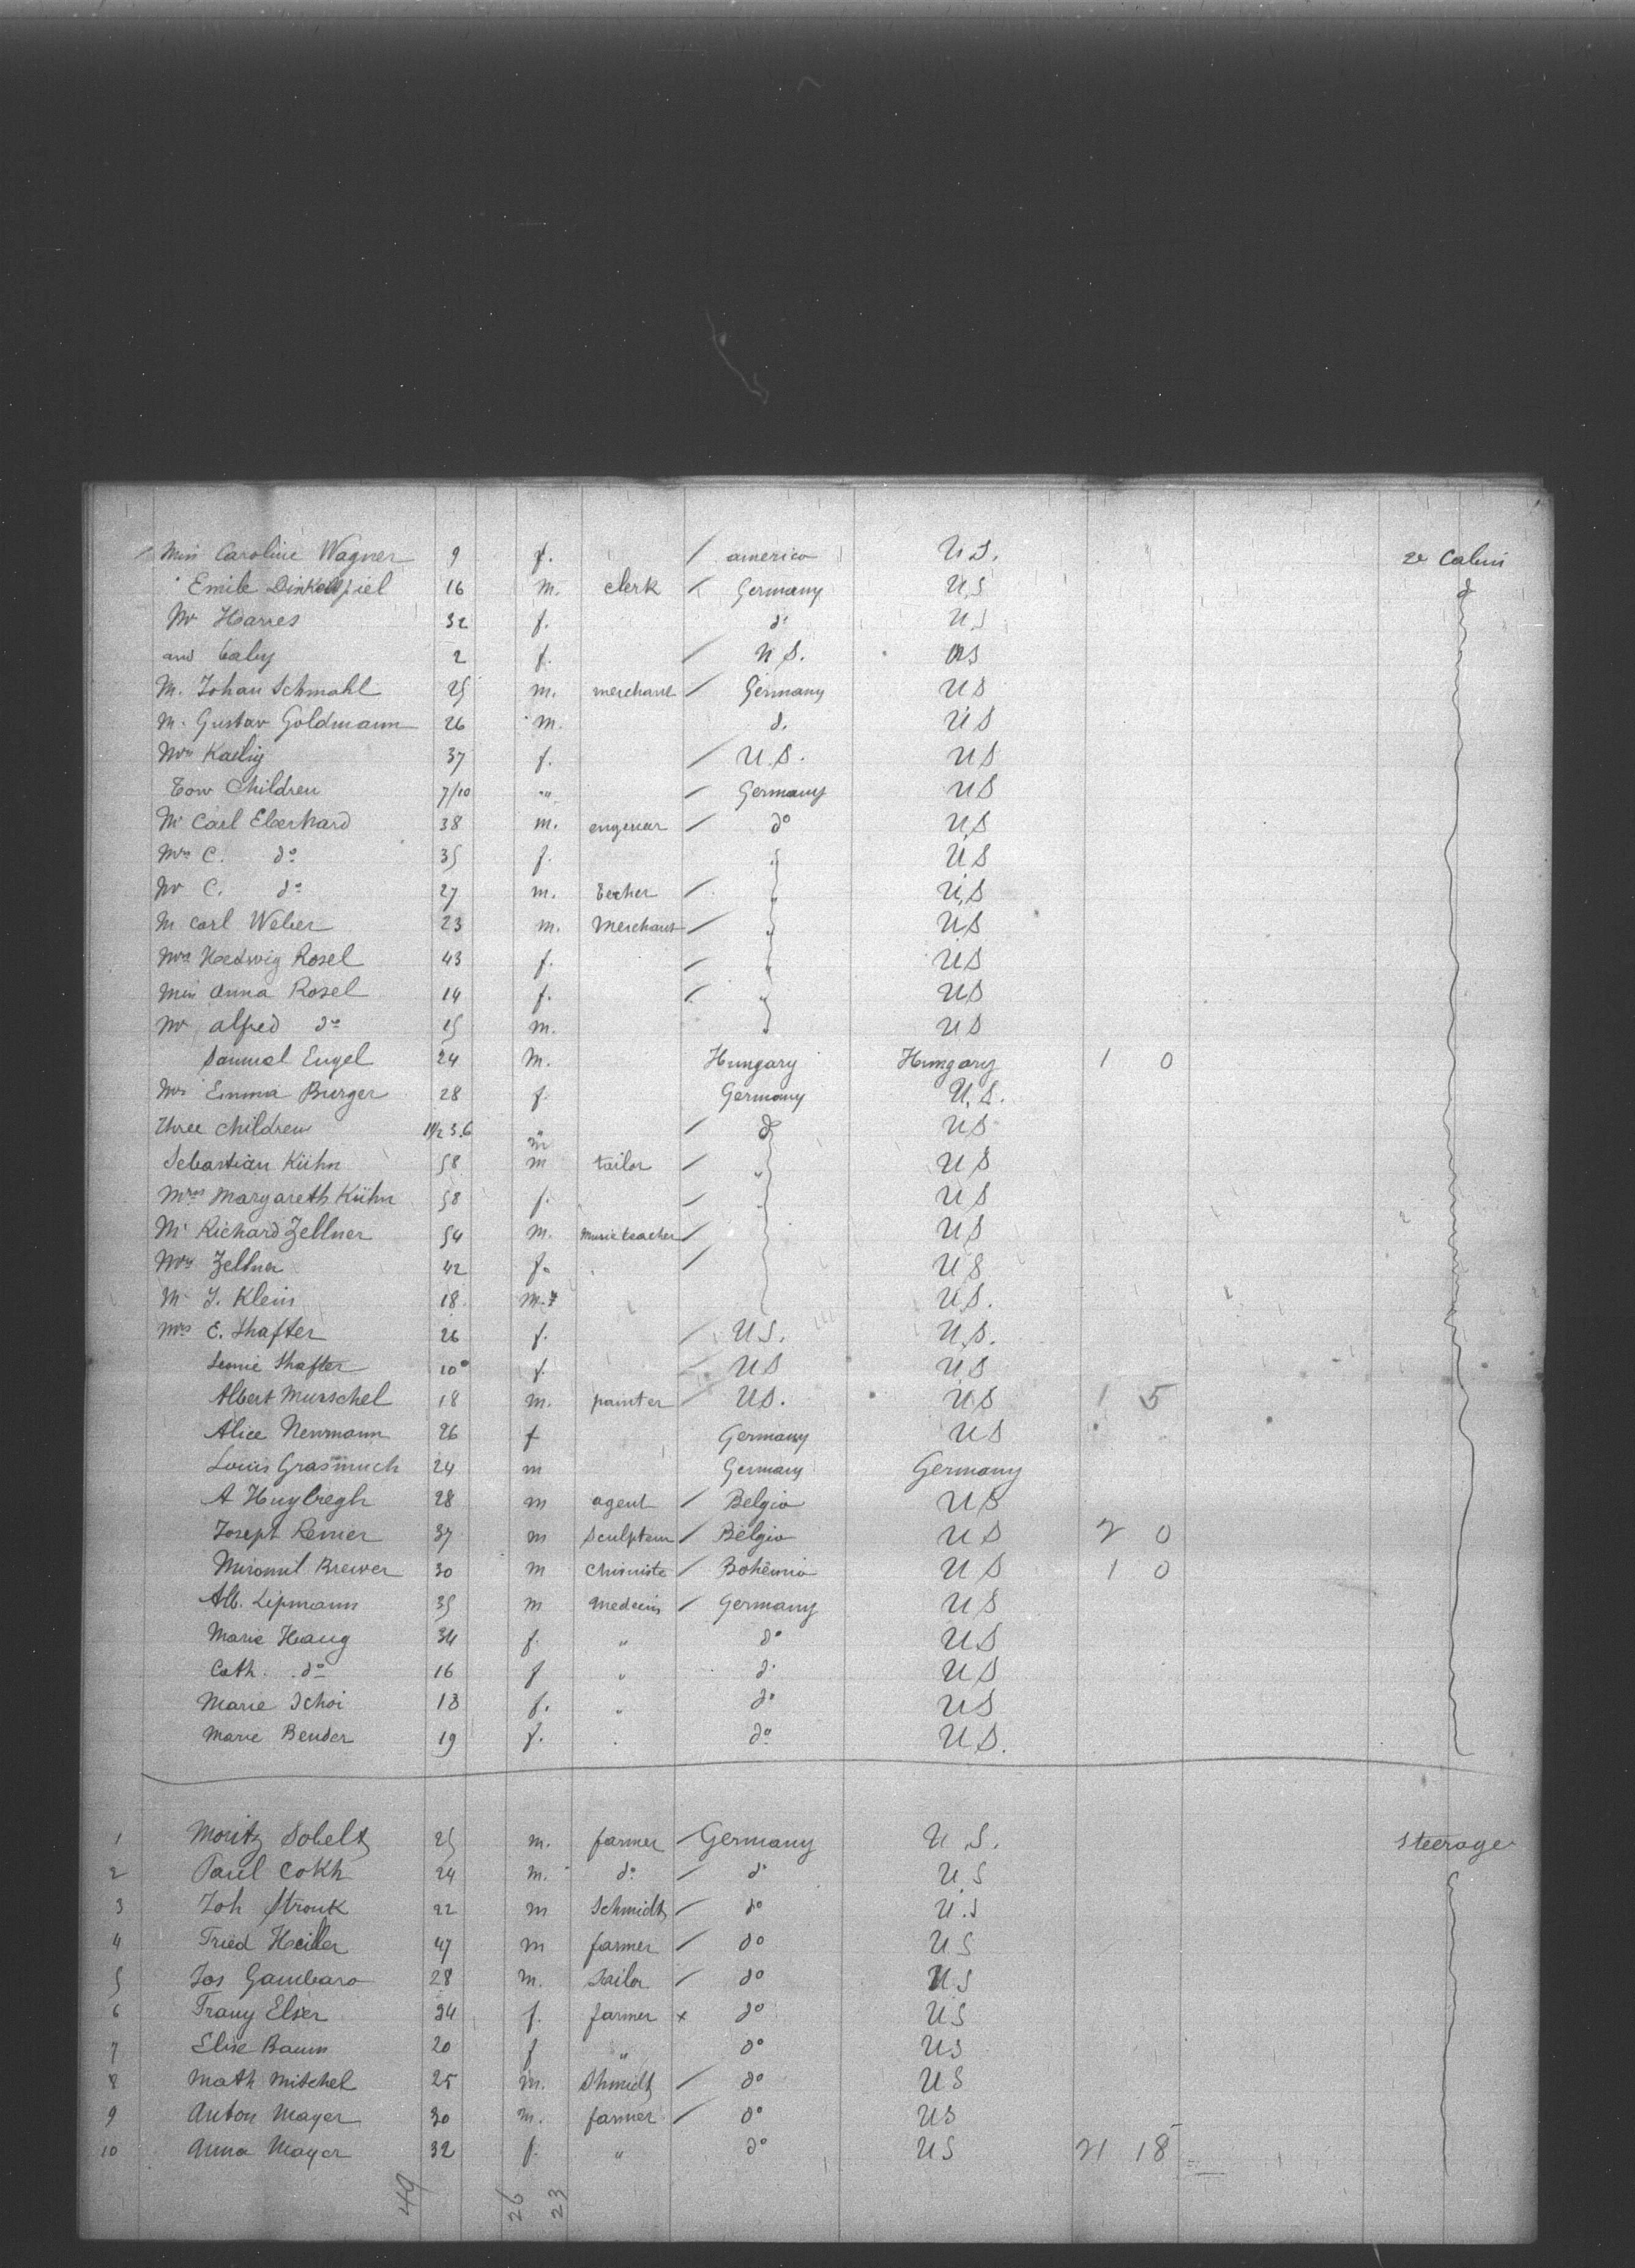 Miss Caroline Wagner 9 f. / america U.S. 2e Cabin
Emile Dinkelspiel 16 m. clerk / Germany U.S do
Mr Harres 32 f. do U.S
and baby 2 f. / U.S. US
M. Johan Schmahl 25 m. merchant / Germany US
M. Gustav Goldmann 26 m. d. US
Mrs 37 f. / U.S. US
Tow Children 7/10 " / Germany US
Mr Carl Eberhard 38 m. / do U.S
Mrs C. do 35 f. US
Mr C. do 27 m. / " U.S
M Carl Weber 23 m. Merchant / " U.S
Mrs Hedwig Rosel 43 f. / " US
Miss Anna Rosel 14 f. / " US
Mr alfred do 15 m. US
Samuel Engel 24 M. Hungary Hungary 1 0
Mrs Emma Burger 28 f. Germany U.S.
three children " / do US
Sebastian Kühn 58 m tailor / " US
Mrs Margareth Kühn 58 f. / US
Mr Richard Zellner 54 m. Music teacher / US
Mrs Zellner 42 f. / US
M J. Klein 18 m. U.S.
Mrs E. Shafter 26 f. / U.S. U.S.
Shafter 10 f. / US US
Albert Murschel 18 m. painter / US. US 1 5
Alice Newmann 26 f Germany US
Louis Grasmuch 24 m Germany Germany
A Huybregh 28 m agent / Belgio US
Joseph Renier 37 m Sculpteur / Belgio US 2 0
Brewer 30 m Chimiste / Bohêmia US 1 0
Alb. Lipmann 35 m Medecin / Germany US
Marie Haug 34 f. " do US
Cath. do 16 f " do US
Marie Schoi 18 f. " do US
Marie Bender 19 f. do U.S.
1 Moritz Sobelz 25 m. farmer / Germany U.S. Steerage
2 Paul Cokh 24 m. do / do U.S
3 Joh Strouk 22 m Schmidt / do U.S
4 Fried Heiller 47 m farmer / do US
5 Jos Gambaro 28 m. / do US
6 Elser 34 f. farmer x do US
7 Elise Baum 20 f " do US
8 Math Mitchel 25 m. Shmidt / do US
9 Anton Mayer 30 m. farmer / do US
10 Anna Mayer 32 f. " do US 21 18
49 26 23